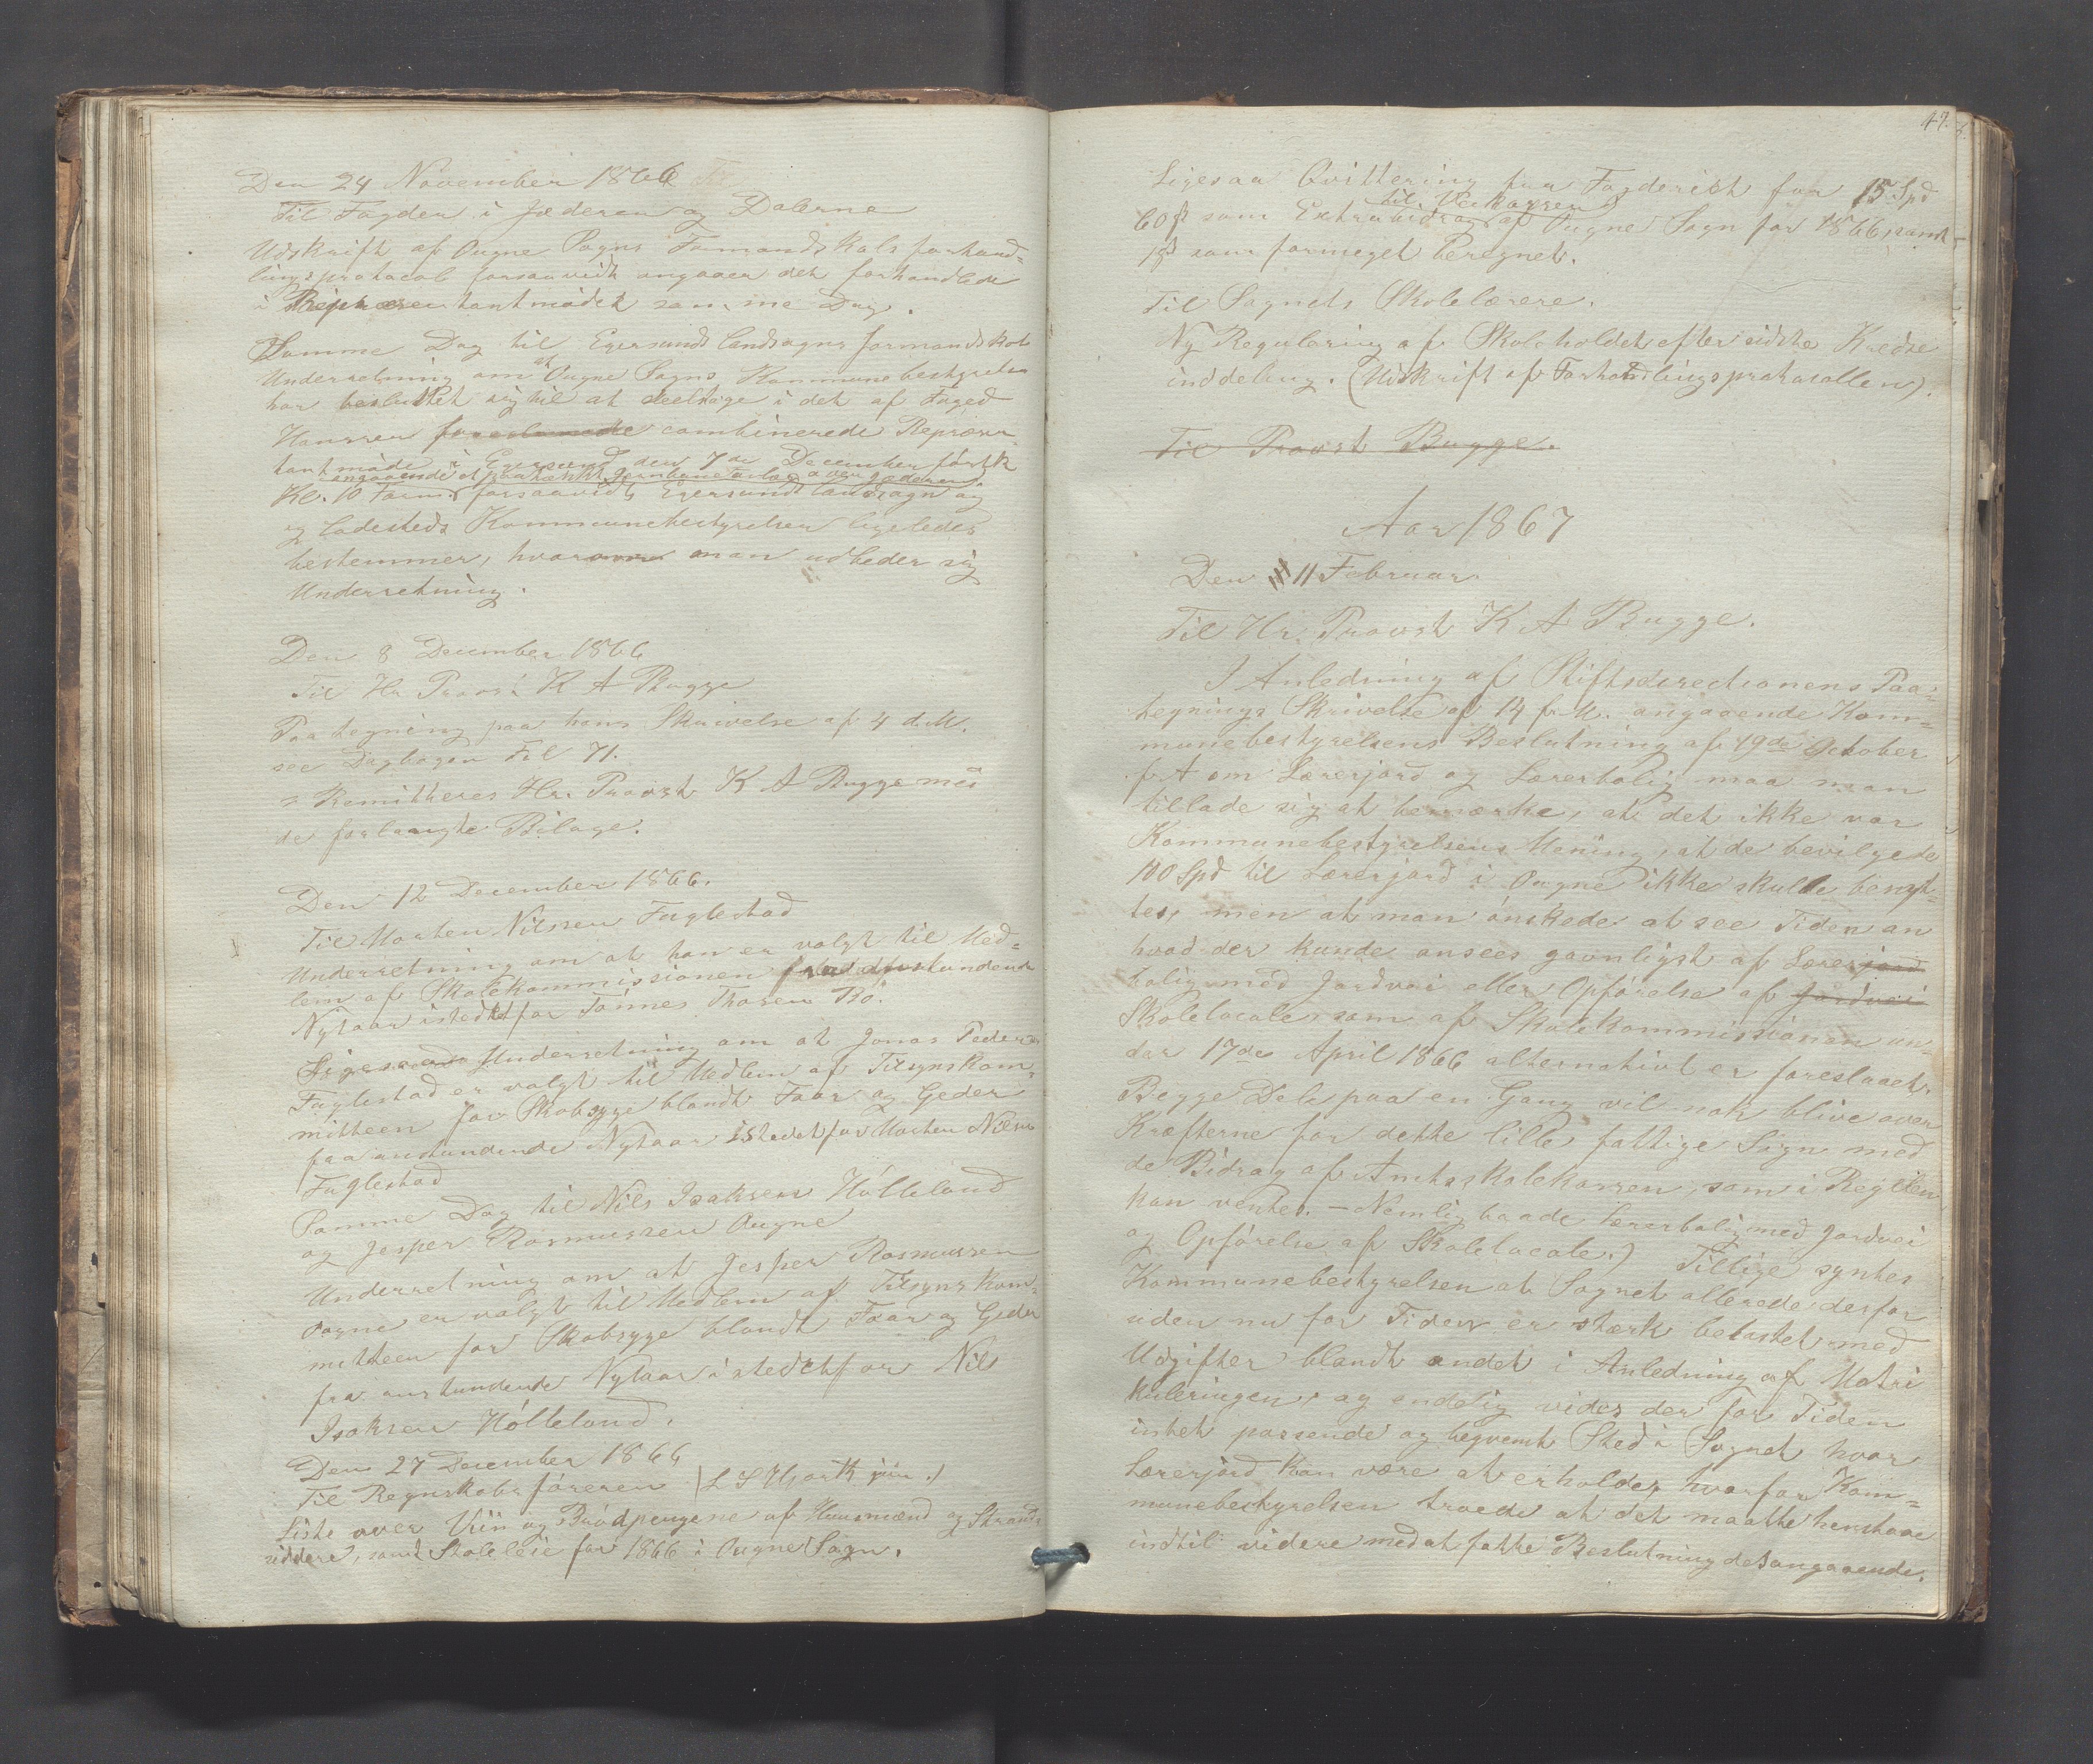 Den 24 November 1866
Til Fogden i Jæderen og Dalerne
Udskrift af Ougne Sogns Formandskabs forhand=
lingsprotocol forsaavidt angaaer det forhandlede
i Repræsentantmødet samme Dag.
Samme Dag til Egersunds Landsogns formandskab
Underretning om at Ougne Sogns Kommunebestyrelse
har besluttet sig til at deeltage i det af Foged
Hansson foreslaaede combinerede Repræsen-
tantmøde i Egersund den 7de December først k
angaaende et paatænkt Jernbaneanlæg over Jæderen
Kl. 10 Form. forsaavidt Egersunds landsogn og
og Ladesteds Kommunebestyrelser ligeledes
bestemmer, hvorom man udbeder sig
Underretning.
Den 8 December 1866
Til Hr Provst K A Bugge
Paategning paa hans Skrivelse af 4 d. M.
see Dagbogen Fol 71.
Remitteres Hr. Provst K A Bugge med
de forlangte Bilage.
Den 12 December 1866.
Til Morten Nilssen Fuglestad
Underretning om at han er valgt til Med=
lem af Skolekommissionen fra anstundende
Nytaar istedetfor Tønnes Thorsen Bø.
Ligesaa Underretning om at Jonas Pedersen
Fuglestad er valgt til Medlem af Tilsynskom=
mitteen for Skabsyge blandt Faar og Geder
fra anstundende Nytaar istedetfor Morten Nilsen
Fuglestad
Samme Dag til Nils Isaksen Hølleland
og Jesper Rasmussen Ougne
Underretning om at Jesper Rasmussen
Ougne er valgt til Medlem af Tilsynskom=
mitteen for Skabsyge blandt Faar og Geder
fra anstundende Nytaar istedetfor Nils
Isaksen Hølleland.
Den 27 December 1866
Til Regnskabsføreren (L S Hjorth jun.)
Liste over Viin og Brødpengene af Huusmænd og Strand=
siddere, samt Skoleleie for 1866 i Ougne Sogn.
47.
Ligesaa Qvittering fra Fogderiet for 15 Spd
til Veikassen
60 ß som Extrabidrag af Ougne Sogn for 1866, samt
1 ß som formeget beregnet.
Til Sognets Skolelærere.
Ny Regulering af Skoleholdet efter sidste Kredse
inddeling. (Udskrift af Forhandlingsprotocollen).
Til Provst Bugge.
Aar 1867
Den 11 Februar
Til Hr. Provst K A Bugge.
I Anledning af Stiftsdirectionens Paa=
tegnings Skrivelse af 14 f. M. angaaende Kom=
munebestyrelsens Beslutning af 19de October
f. A om Lærerjord og Lærerbolig maa man
tillade sig at bemærke, at det ikke var
Kommunebestyrelsens Mening, at de bevilgede
100 Spd til Lærerjord i Ougne ikke skulde benyt=
tes, men at man ønskede at see Tiden an
hvad der kunde ansees gavnligst af Lærerjord
bolig med Jordvei eller Opførelse af Jordvei
Skolelocale som af Skolekommissionen un=
der 17de April 1866 alternativt er foreslaaet.
Begge Dele paa en Gang vil nok blive over
Kræfterne for dette lille fattige Sogn med
de Bidrag af Amtsskolekassen, som i Regelen
kan ventes. – Nemlig baade Lærerbolig med Jordvei
og Opførelse af Skolelocale.) Tillige syntes
Kommunebestyrelsen at Sognet allerede desfor
uden nu for Tiden er stærk belastet med
Udgifter blandt andet i Anledning af Matri
kuleringen, og endelig vides der for Tiden
intet passende og beqvemt Sted i Sognet hvor
Lærerjord kan være at erholde, hvorfor Kom=
munebestyrelsen troede at det maatte henstaae
indtil videre med at fatte Beslutning desangaaende.